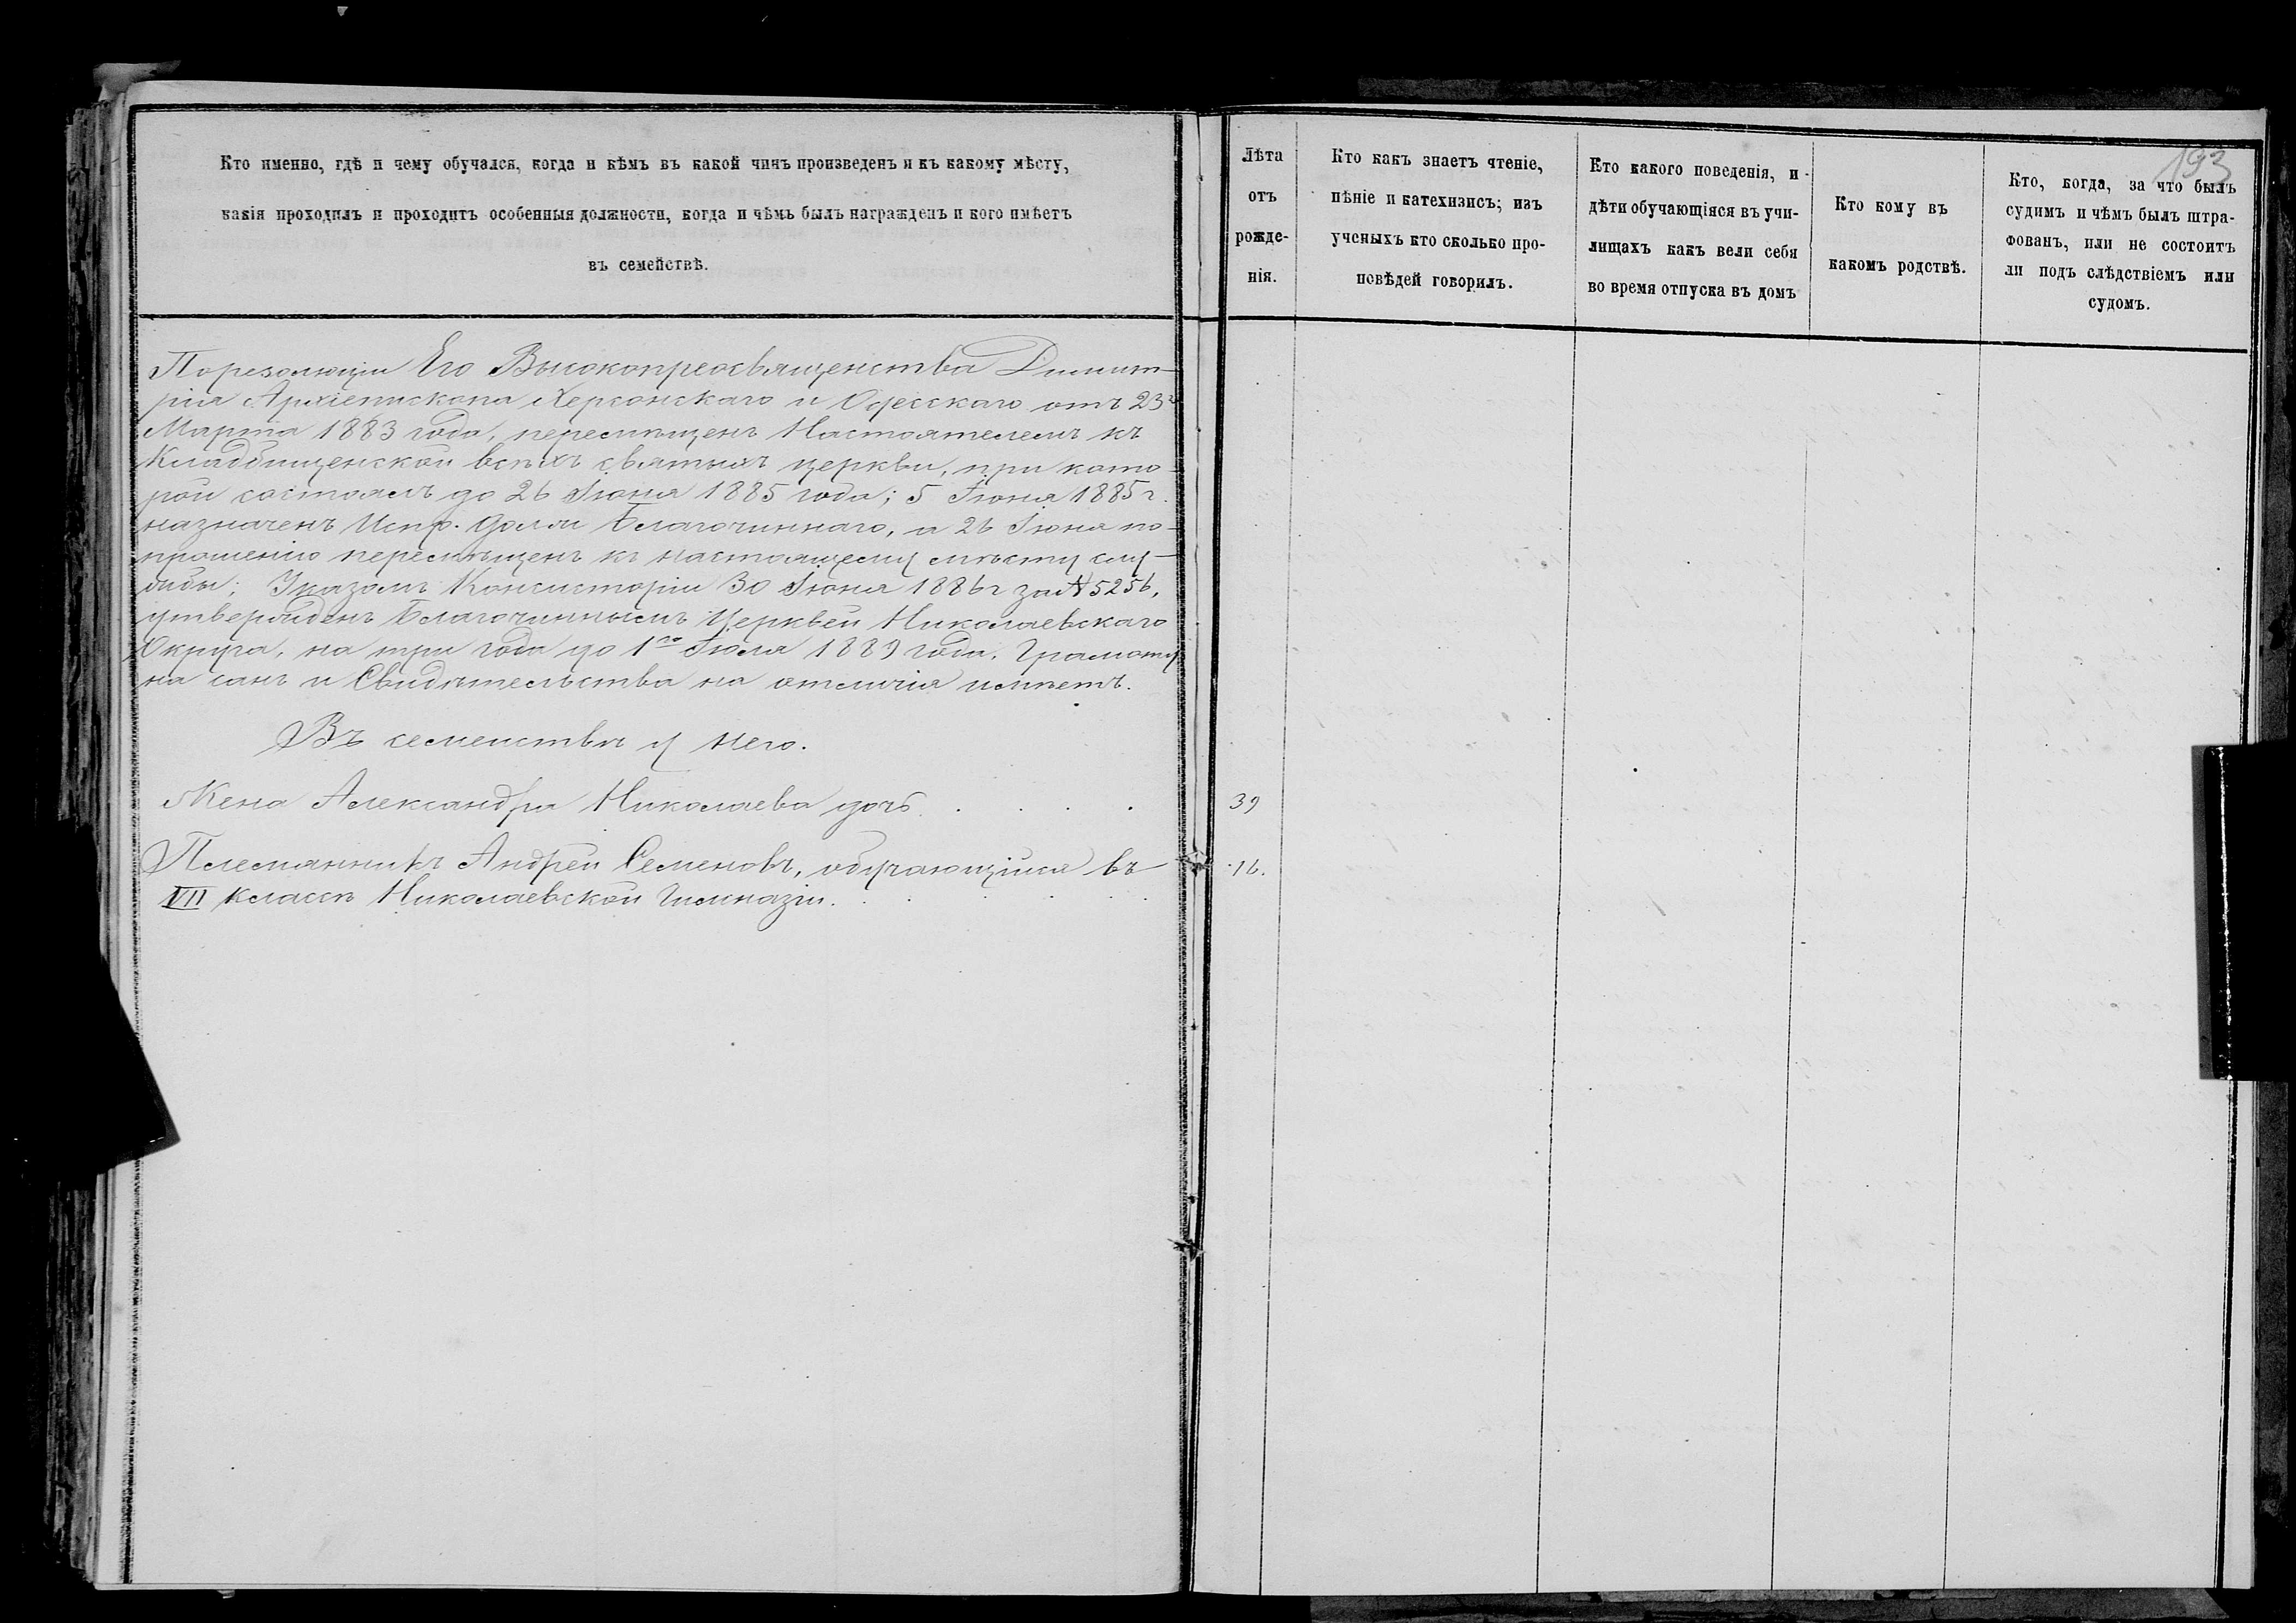 193
Кто именно, гдѣ и чему обучался, когда и кѣмъ въ какой чинъ произведенъ и къ какому мѣсту,
какія проходилъ и проходитъ особенныя должности, когда и чѣмъ былъ награжденъ и кого имѣетъ
въ семействѣ.
Лѣта
отъ
рожде-
нія.
Кто какъ знаетъ чтеніе,
пѣніе и катехизисъ; изъ
ученыхъ кто сколько про-
повѣдей говорилъ.
Кто какого поведенія, и
дѣти обучающіяся въ учи-
лищахъ какъ вели себя
во время отпуска въ домъ
Кто кому въ
какомъ родствѣ.
Кто, когда, за что былъ
судимъ и чѣмъ былъ штра-
фованъ, или не состоитъ
ли подъ слѣдствіемъ или
судомъ.
По резолюціи Его Высокопреосвященства Димит-
рія Архіепископа Херсонскаго и Одесскаго отъ 23г
Марта 1883 года, перемѣщенъ Настоятелемъ къ
Кладбищенской всѣхъ святыхъ церкви, при кото-
рой состоялъ до 26 Іюня 1885 года; 5 Іюня 1885 г.
назначенъ Испр. долж. Благочиннаго, а 26 Іюня по-
прошенію перемѣщенъ къ настоящему мѣсту слу-
жбы; Указомъ Консисторіи 30 Іюня 1886 г за № 5256,
утвержденъ Благочиннымъ Церквей Николаевскаго
Округа, на три года до 1го Іюля 1889 года. Грамоту
на санъ и Свидѣтельства на отличія имѣетъ.
Въ семействѣ у него.
Жена Александра Николаева дочь. . . . . 39
Племянникъ Андрей Семеновъ, обучающійся въ 16.
VII классѣ Николаевской Гимназіи. . . . . .